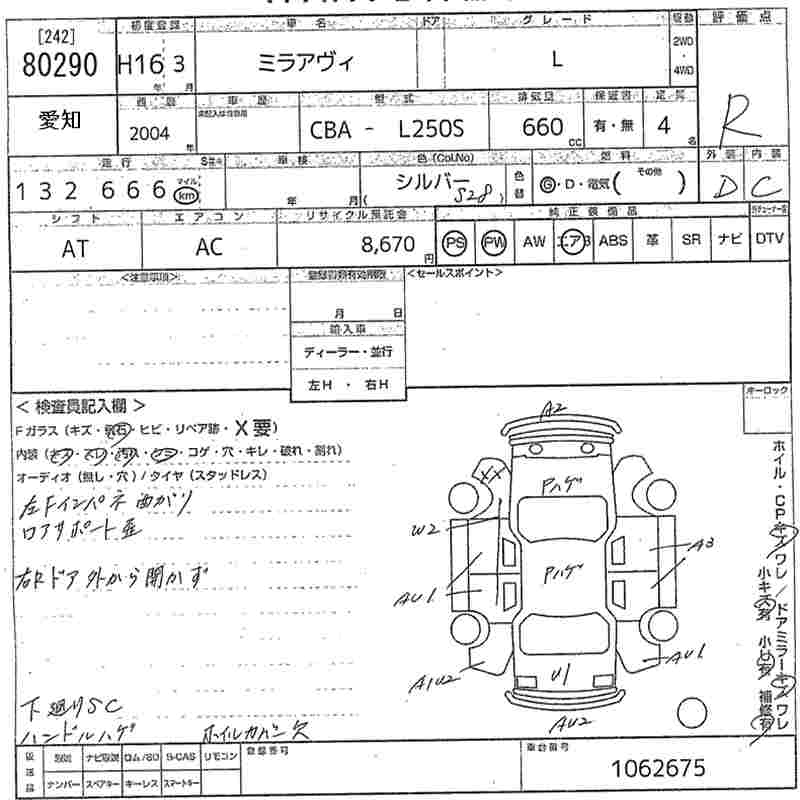 [242]
80290
初度登録
車名
ドア
グレード
駆動
評価点
H16 3
年 月
ミラアヴィ
L
2WD
・
4WD
愛知
西暦
2004 年
車歴
型式
CBA - L250S
排気量
660 cc
保証書
有・無
定員
4 名
R
走行
132,666
マイル
km
車検
年 月
色(Col.No)
シルバー
S28
色替
燃料
G・D・電気( その他 )
外装
内装
D C
シフト
エアコン
リサイクル預託金
純正装備品
AT
AC
8,670 円
PS PW AW エアB ABS 革 SR ナビ DTV
<注意事項>
登録書類有効期限
<セールスポイント>
月 日
輸入車
ディーラー・並行
左H ・ 右H
キーロック
< 検査員記入欄 >
Fガラス (キズ・飛石・ヒビ・リペア跡・X要)
内装 (キズ・スレ・汚れ・シミ・コゲ・穴・キレ・破れ・割れ)
オーディオ (無し・穴) / タイヤ (スタッドレス)
左Fインパネ曲がり
ロアサポート歪
右Rドア外から開かず
下廻りSC
ハンドルハゲ
ホイルカバー欠
A2
XX
Pハゲ
W2
A3
Pハゲ
AU1
AU1
A1U2
U1
AU2
ホイル・CPキズワレ/ドアミラーキズワレ
小キズ有 小凹有 補修有
販送品
ナビ取説 ロム/SD B-CAS リモコン
ナンバー スペアキー キーレス スマートキー
登録番号
車台番号
1062675